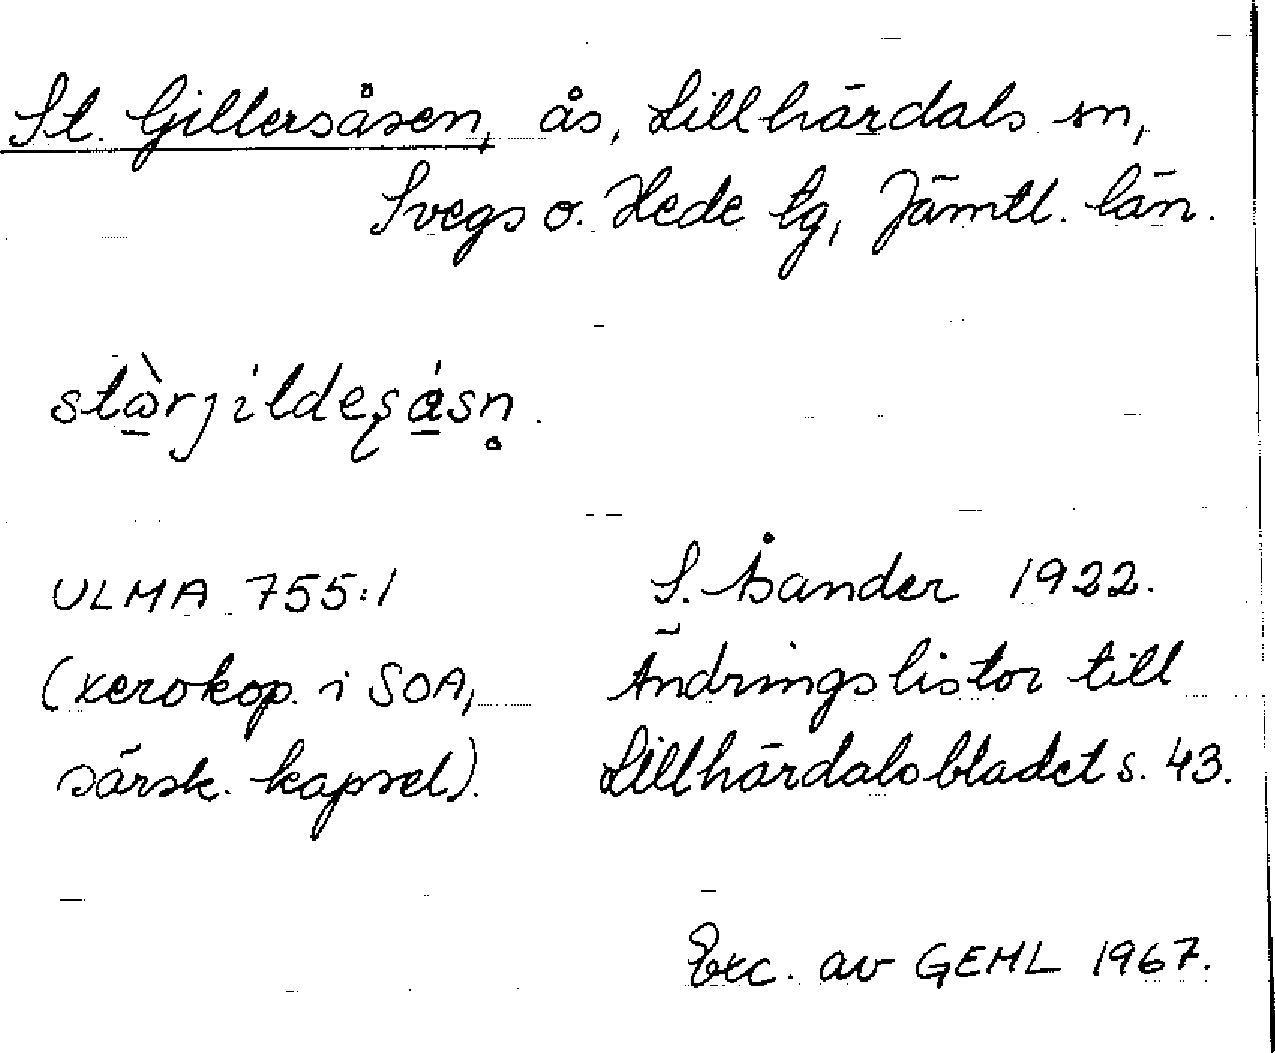 St. Gillersåsen, ås, Lillhärdals sn,
Svegs o. Hede tg, Jämtl. län.
ULMA 755:1
(xerokop. i SOA,
särsk. kapsel).
S. Åsander 1922.
Ändringslistor till
Lillhärdalsbladet s. 43.
Exc. av GEHL 1967.